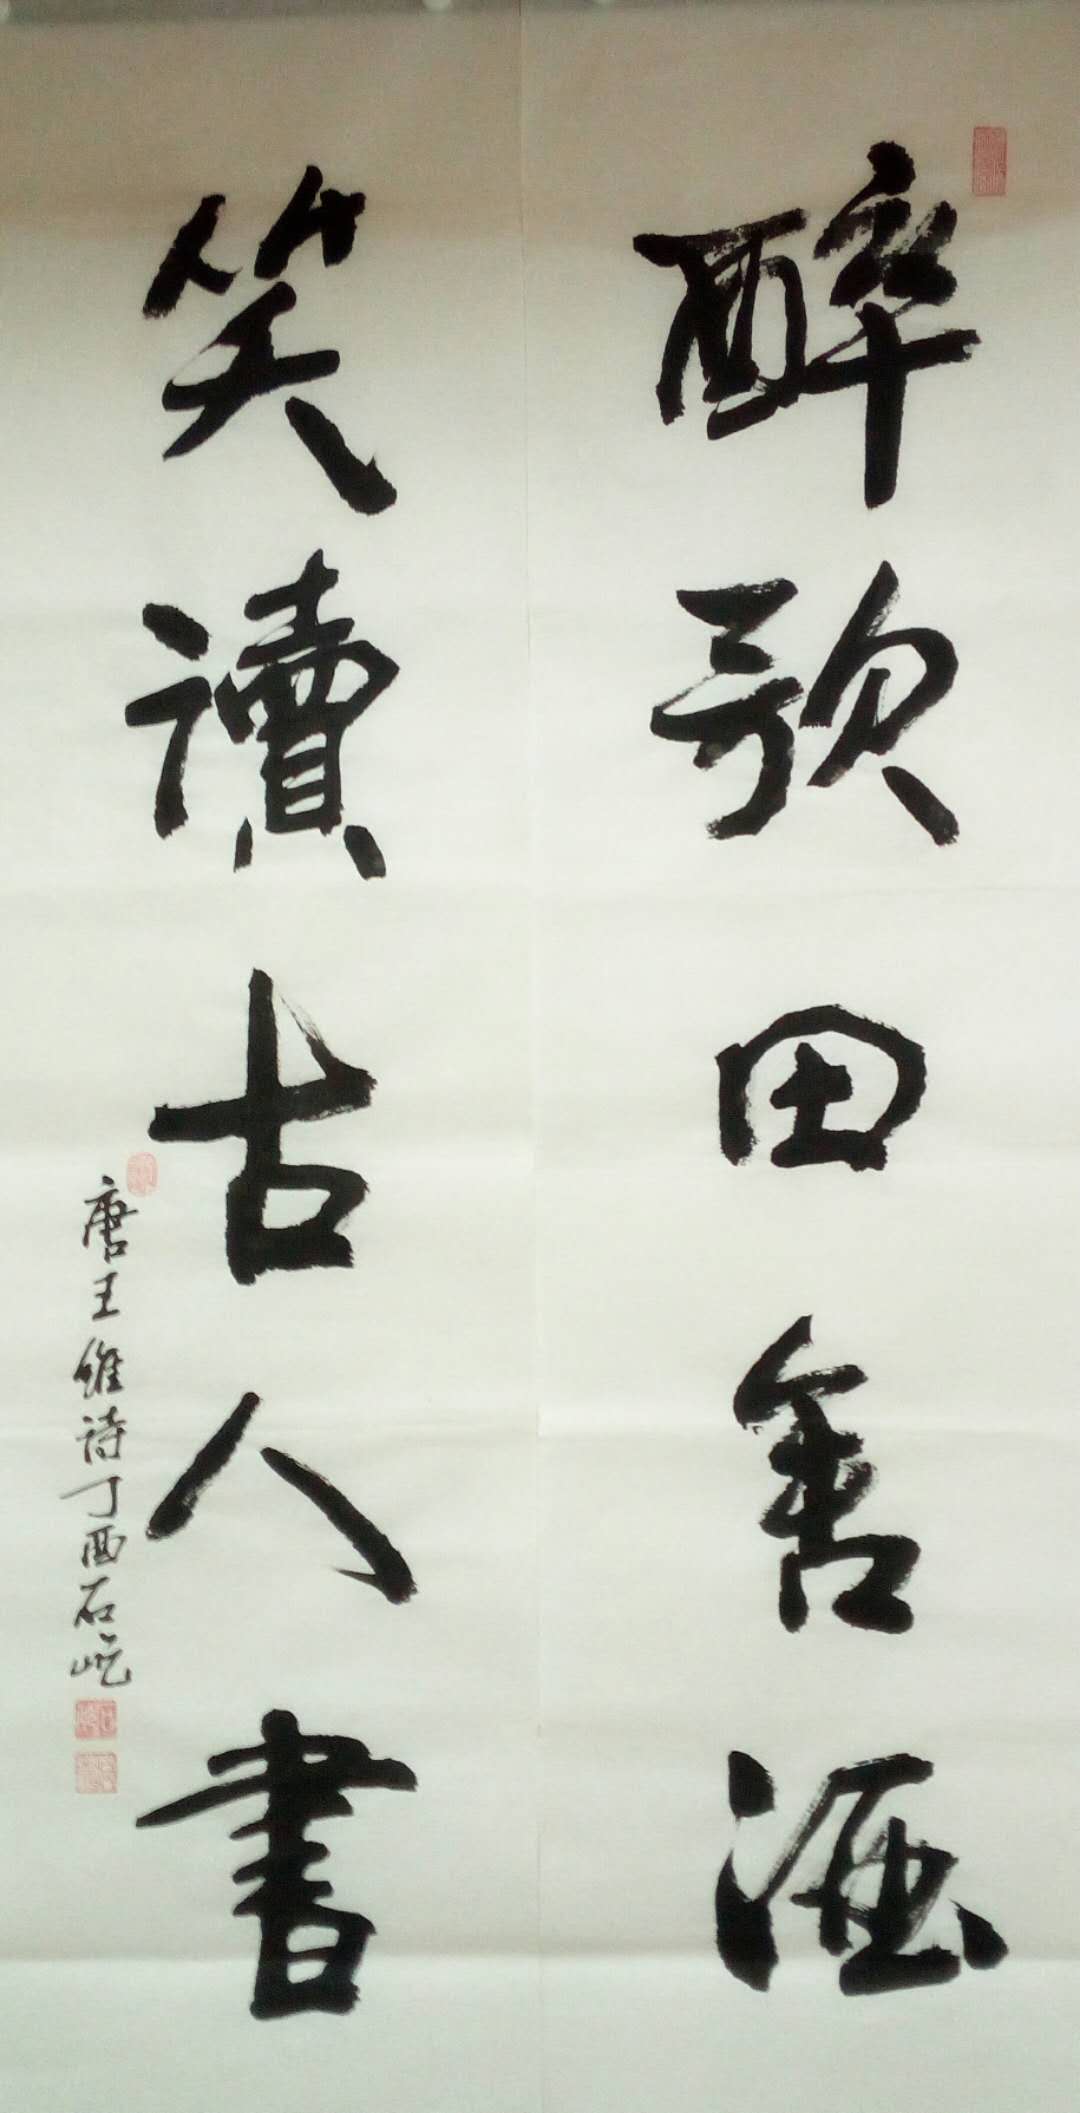 醉歌田舍酒
笑讀古人書
唐王维诗丁酉石屹